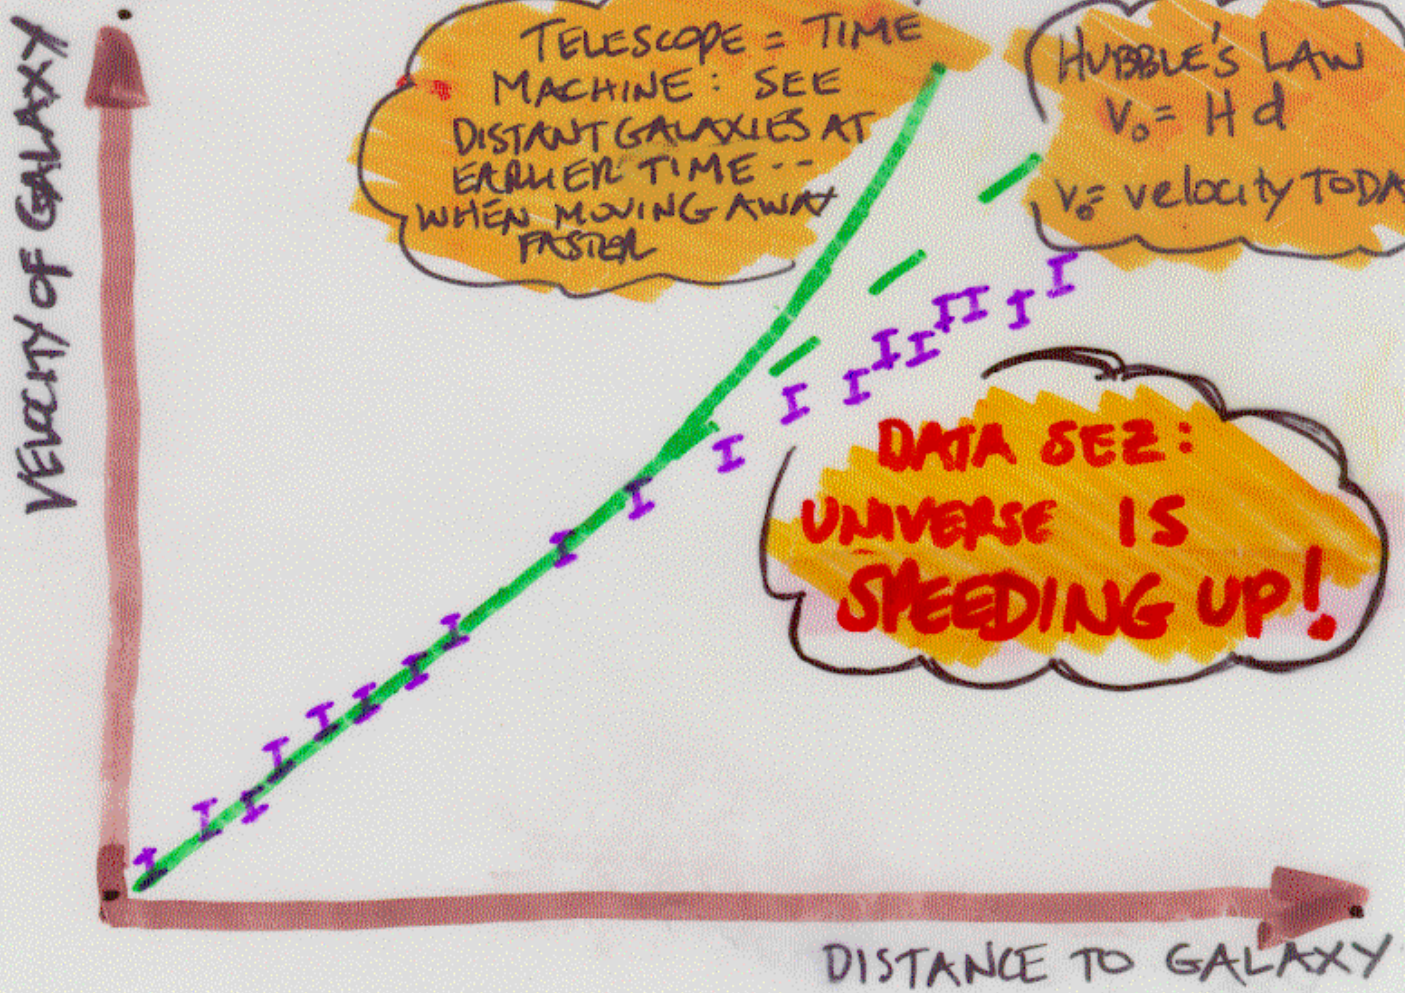 VELOCITY OF GALAXY
TELESCOPE = TIME
MACHINE: SEE
DISTANT GALAXIES AT
EARLIER TIME --
WHEN MOVING AWAY
FASTER
HUBBLE'S LAW
v₀ = H d
v₀= velocity TODA
DATA SEZ:
UNIVERSE IS
SPEEDING UP!
DISTANCE TO GALAXY